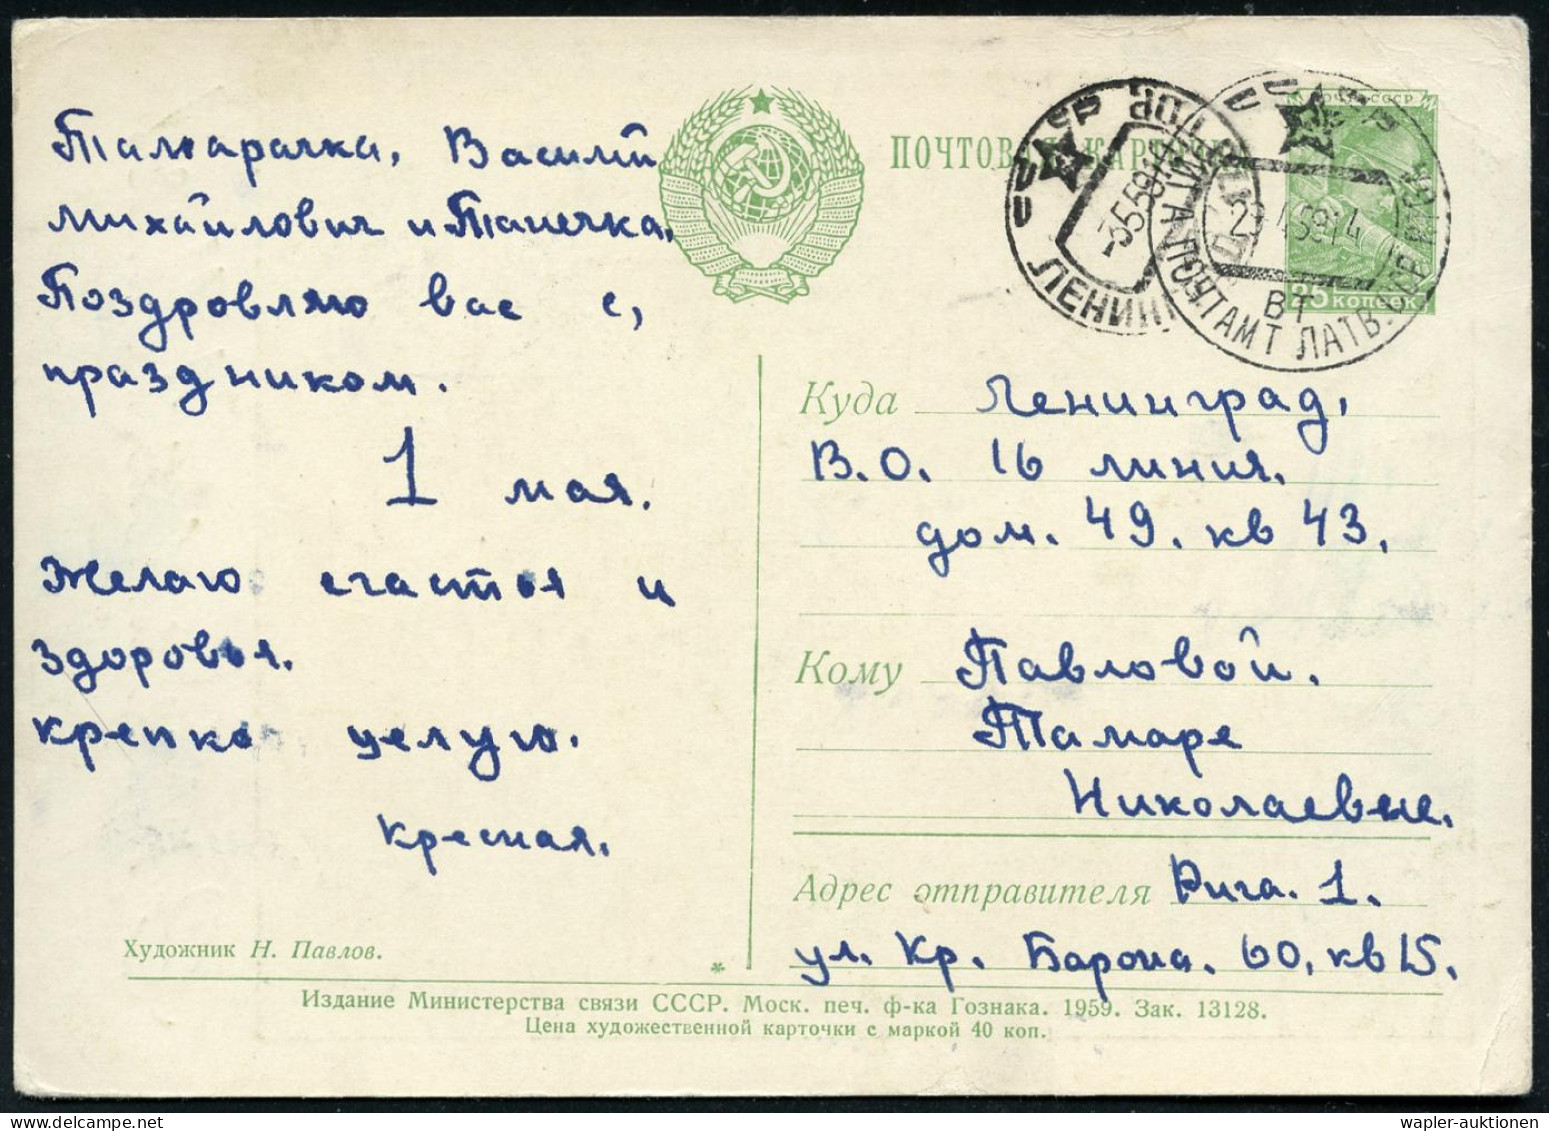 Тамарачка, Василий
Михайлович и Танечка.
Поздровляю вас с,
праздником.
1 мая.
Желаю счастья и
здоровья.
крепко целую.
Кресная.
Художник Н. Павлов.
ПОЧТОВАЯ КАРТОЧКА
ПОЧТА СССР
25 КОПЕЕК
СССР
ЛЕНИНГ
3559
СССР
РИГА ПОЧТАМТ ЛАТВ.ССР
ВТ
Куда Ленинград,
В.О. 16 линия.
дом. 49. кв 43.
Кому Павловой.
Тамаре
Николаевне.
Адрес отправителя Рига. 1.
ул. Кр. Барона. 60, кв 15.
Издание Министерства связи СССР. Моск. печ. ф-ка Гознака. 1959. Зак. 13128.
Цена художественной карточки с маркой 40 коп.
wapler-auktionen